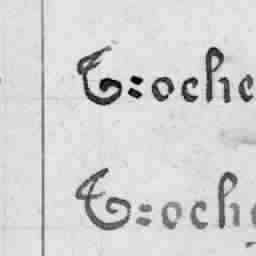 T=oche
T=oche